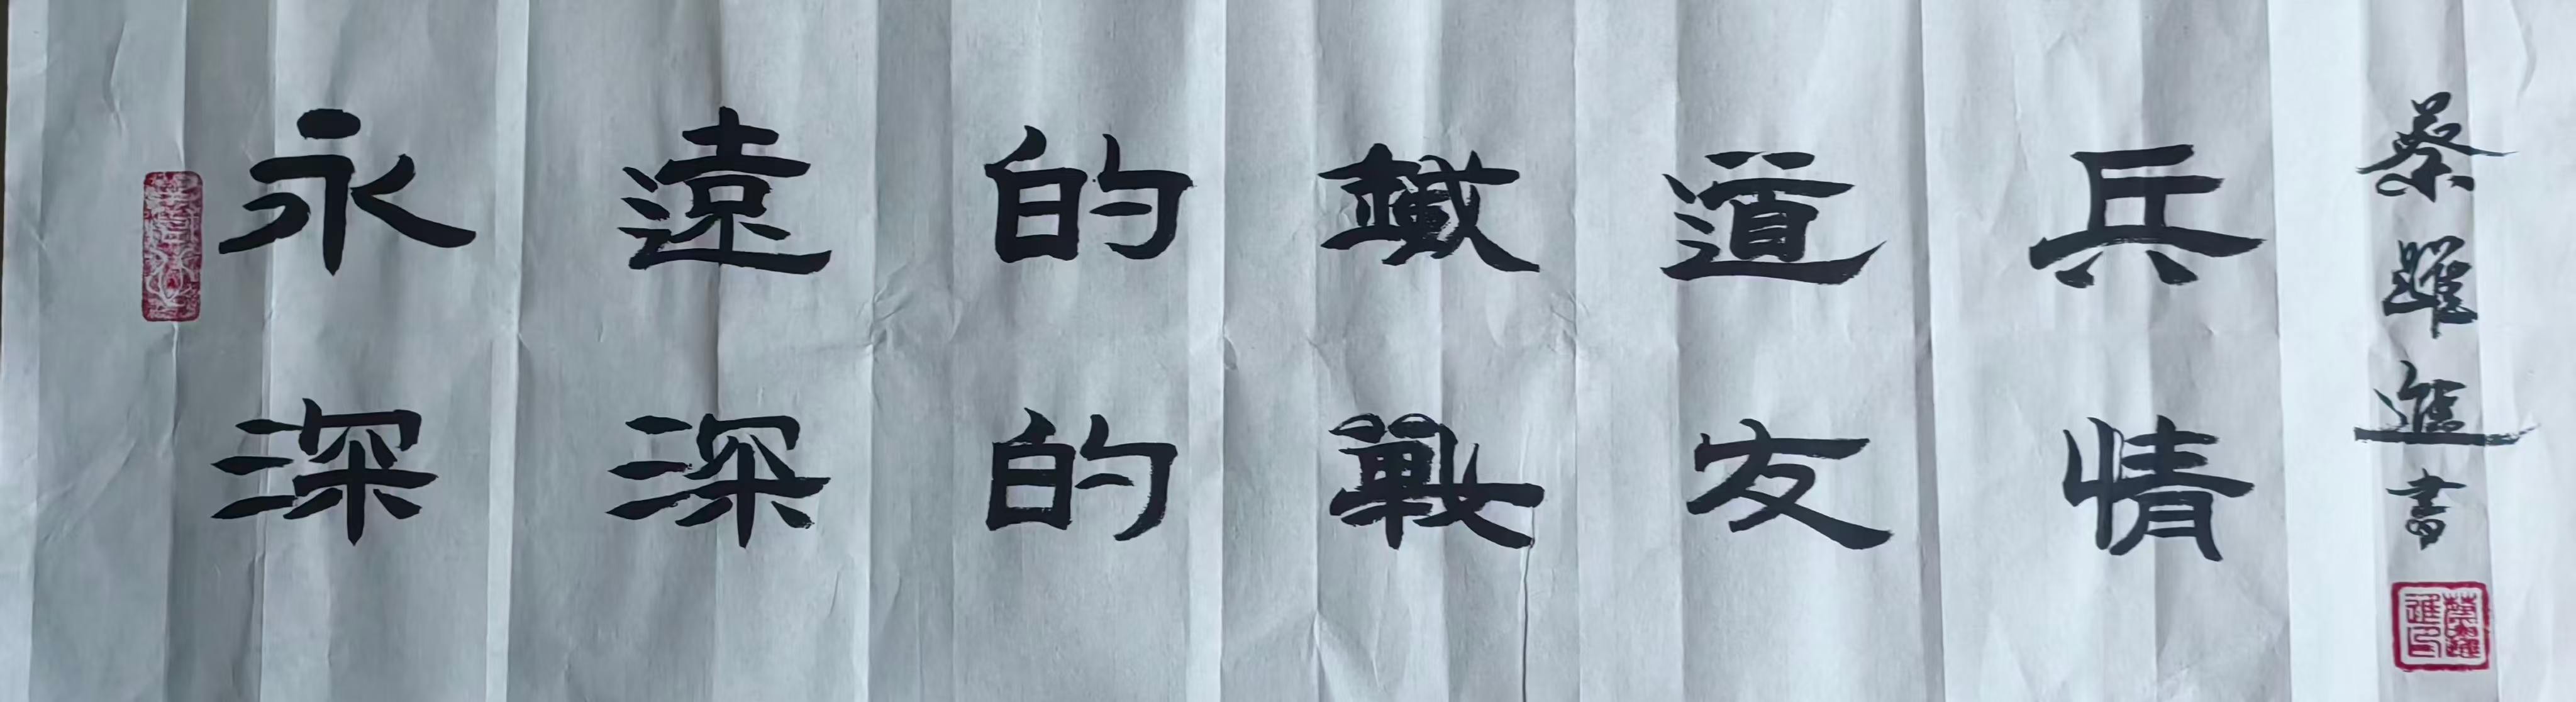 永遠的鐵道兵
深深的戰友情
蔡躍進書
蔡躍進印